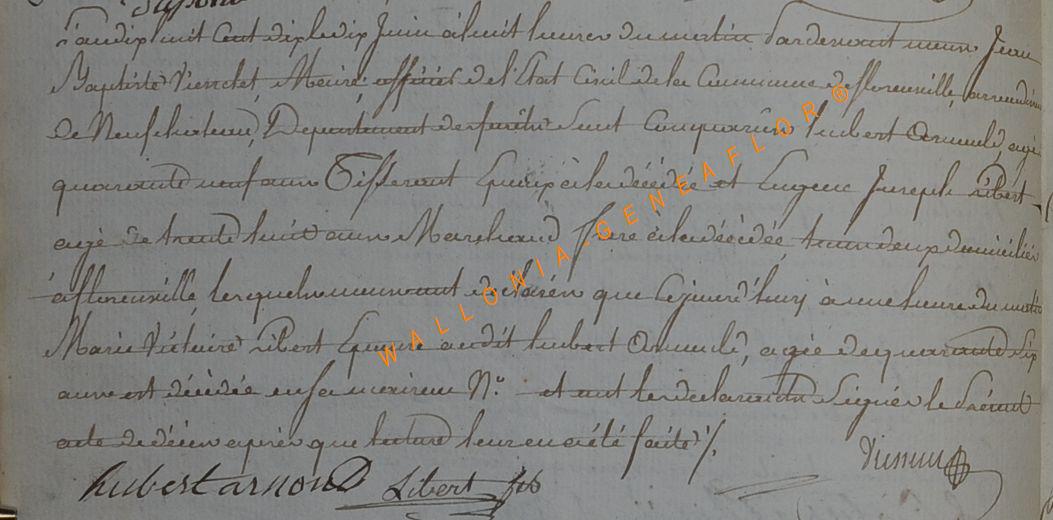 L'an dix huit cent dix le dix Juin à huit heures du matin Pardevant nous Jean
Baptiste Maire, officier de l'Etat Civil de la Commune de florenville, arrondissem
de Neufchateau, Departement des forêts Sont Comparus hubert agé
quarante neuf ans Tisserant Epoux à la décédée et Eugene Joseph Libert
agé de trente huit ans Marchand frere à la décédée, tous deux domiciliés
à florenville, lesquels nous ont déclarés que Cejourd'huy à une heure du matin
Marie Victoire Libert Epouse audit hubert agée de quarante Six
ans est décédée en sa maison N.º et ont les declarants Signés le Présent
acte de décès après que lecture leur en a été faite ./.
hubert arnould Libert
WALLONIA-GENEAFLOR ®